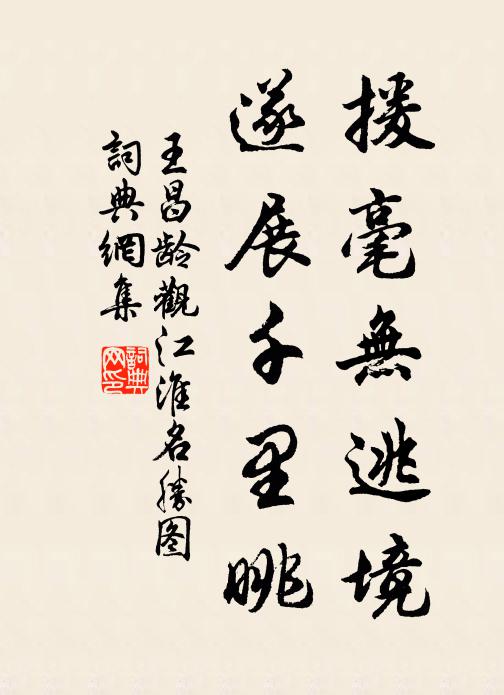 援毫無逃境
遂展千里眺
王昌龄觀江淮名勝图
詞典網集
詞典網印